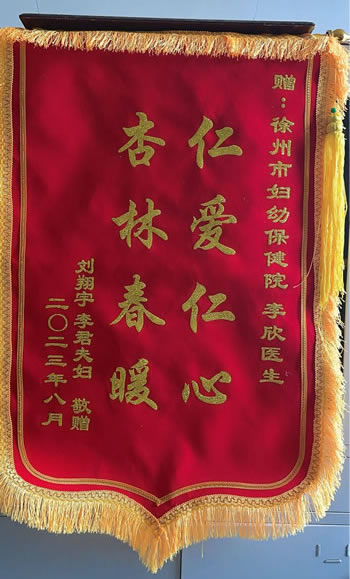 赠：徐州市妇幼保健院 李欣医生
仁爱仁心
杏林春暖
刘翔宇 李君夫妇 敬赠
二〇二三年八月